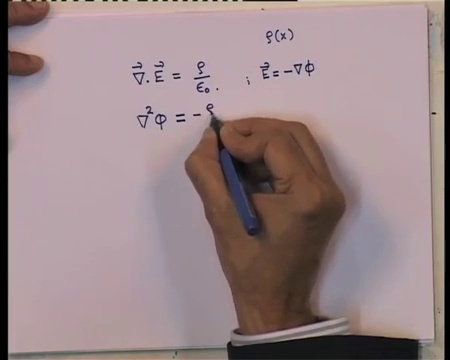 ρ(x)
∇⃗.E⃗ = ρ/ε₀. ; E⃗ = -∇φ
∇²φ = -ρ